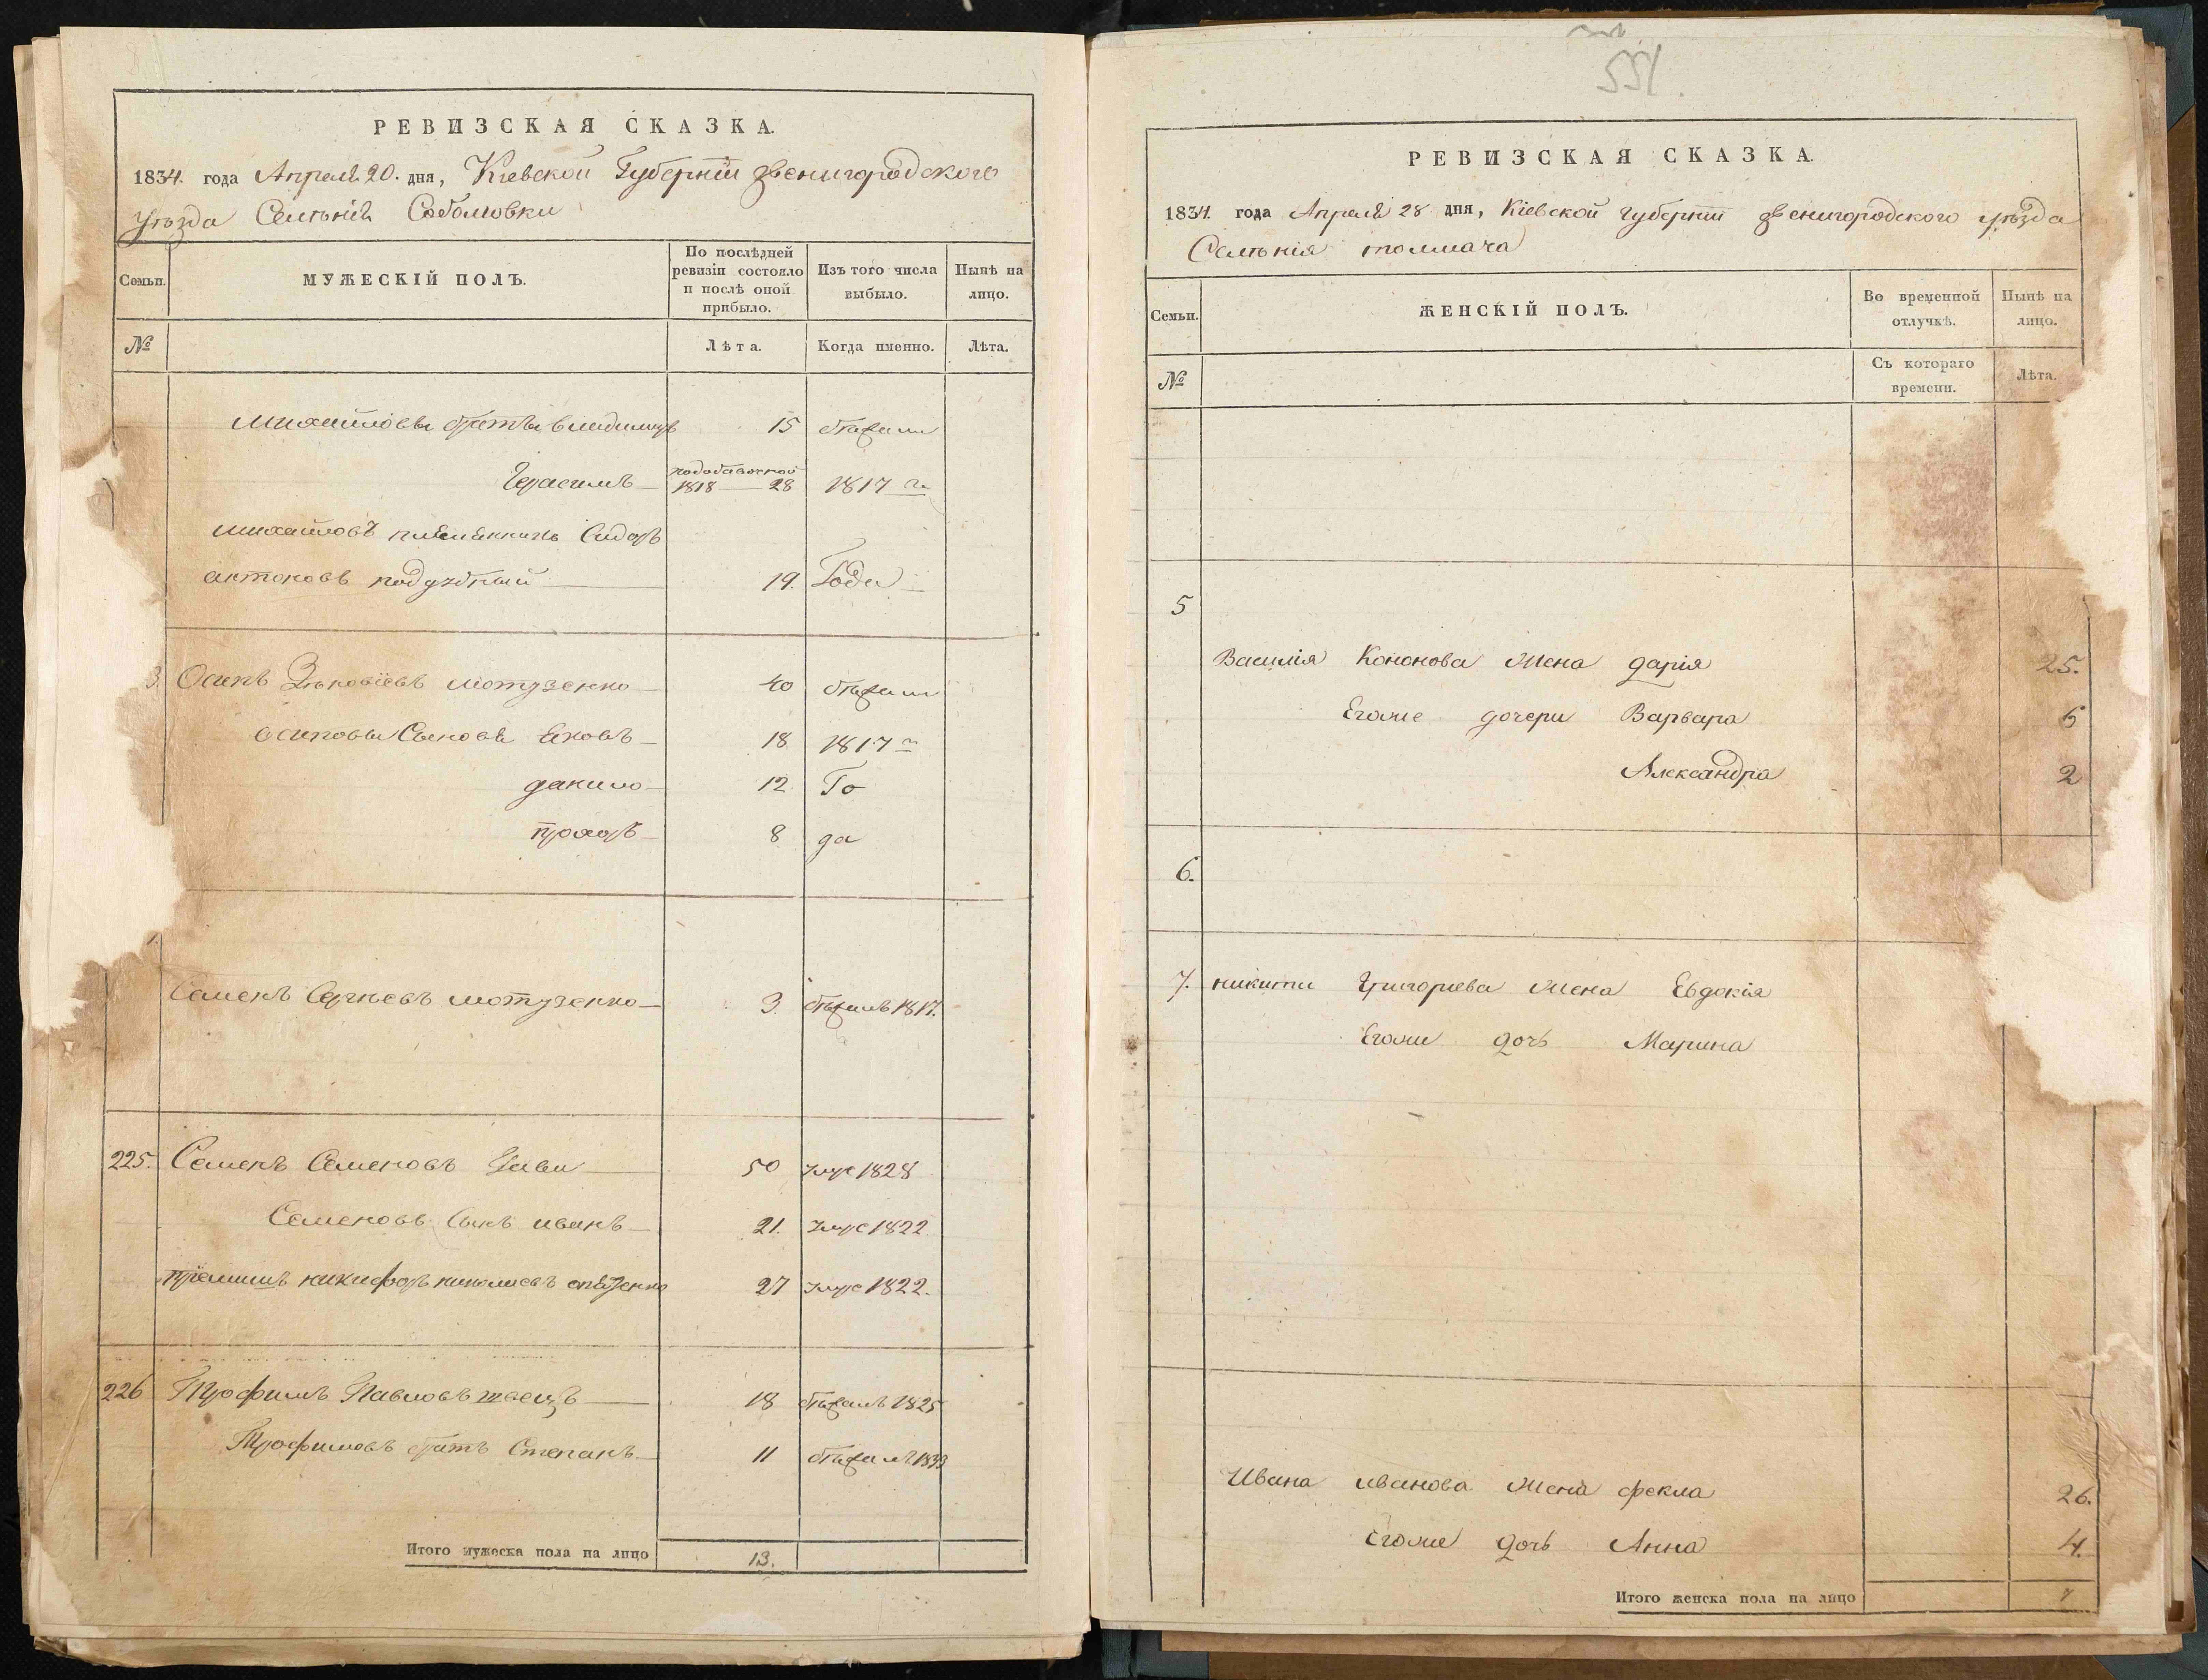 РЕВИЗСКАЯ СКАЗКА.
1834. года Апреля 20. дня, Кіевской Губерніи звенигородского
уѣзда Селѣнія Соболювки
Семьи.
МУЖЕСКІЙ ПОЛЪ.
По послѣдней ревизіи состояло и послѣ оной прибыло.
Изъ того числа выбыло.
Нынѣ на лицо.
№
Лѣта.
Когда именно.
Лѣта.
Михайловы братья 15 бѣжали
Герасимъ 1818 28 1817 го
михайловъ племянникъ Сидоръ
антоновъ поддубный 19. Года
3. Осипъ мотузенко 40 бѣжали
осиповы Сыновья Яковъ 18 1817 го
данило 12 Го
прохоръ 8 да
Семенъ Сергѣевъ мотузенко 3. бѣжалъ 1817.
225. Семенъ Семеновъ 50 умре 1828
Семеновъ Сынъ иванъ 21. умре 1822
пріемишъ никифоръ 27 умре 1822.
226 Трофимъ Павловъ швецъ 18 бѣжалъ 1825
Трофимовъ братъ Степанъ 11 бѣжалъ 1833
Итого мужеска пола на лицо 13.
551.
РЕВИЗСКАЯ СКАЗКА.
1834. года Апреля 28 дня, Кіевской губерніи звенигородского уѣзда
Селѣнія толмача
Семьи.
ЖЕНСКІЙ ПОЛЪ.
Во временной отлучкѣ.
Нынѣ на лицо.
№
Съ котораго времени.
Лѣта.
5
Василія Кононова жена дарія 25.
Егоже дочери Варвара 6
Александра 2
6.
7. никиты Григорьева жена Евдокія
Егоже дочь Марина
Ивана иванова жена фекла 26.
Егоже дочь Анна 4.
Итого женска пола на лицо 7